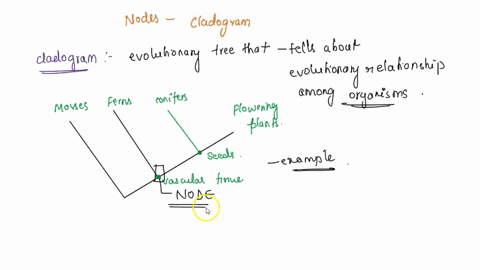 Nodes - Cladogram
cladogram :- evolutionary tree that - tells about
evolutionary relationship
among organisms.
Mosses Ferns conifers flowering
plants.
seeds.
- example.
vascular tissue
NODE